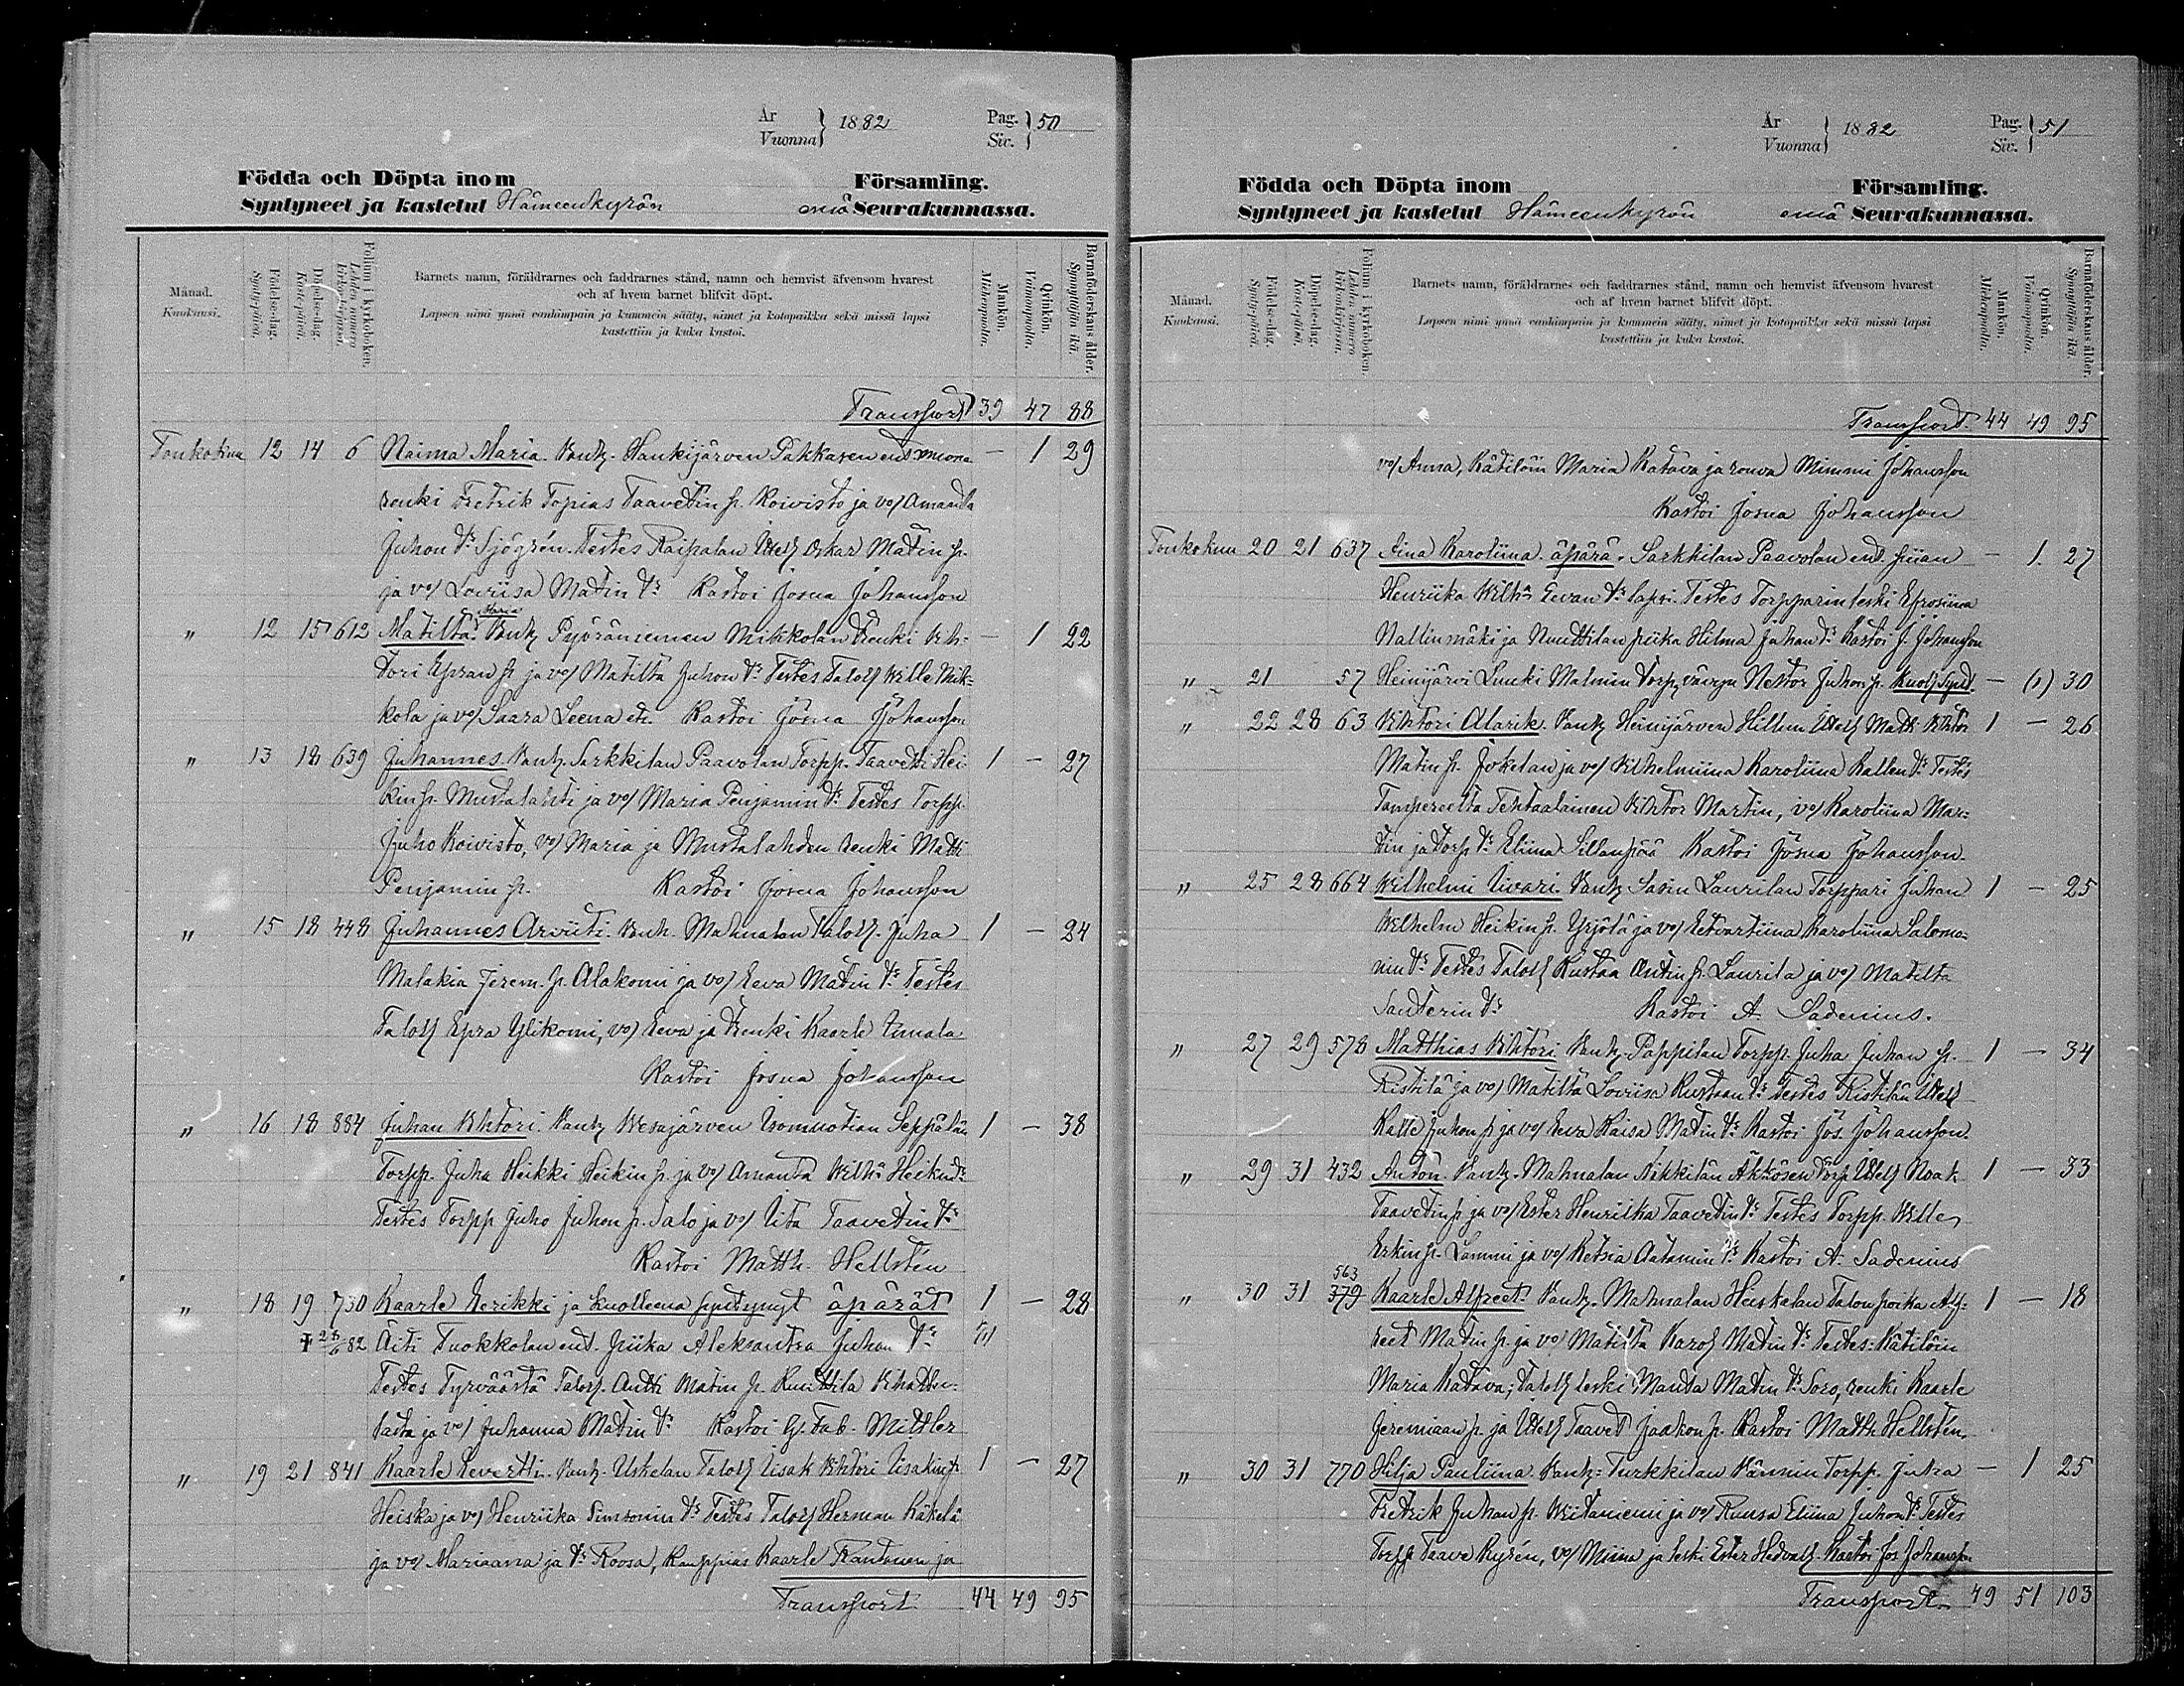 År
Vuonna } 1882
Pag.
Siv. } 50
Födda och Döpta inom Församling.
Syntyneet ja kastetut Hämeenkyrön emä Seurakunnassa.
Månad.
Kuukausi.
Födelse-dag.
Synty-päivä.
Döpelse-dag.
Kaste-päivä.
Folium i kyrkoboken.
Lehden numero kirkonkirjassa.
Barnets namn, föräldrarnes och faddrarnes stånd, namn och hemvist äfvensom hvarest
och af hvem barnet blifvit döpt.
Lapsen nimi ynnä vanhimpain ja kummein sääty, nimet ja kotopaikka sekä missä lapsi
kastettiin ja kuka kastoi.
Mankön.
Miehenpuolia.
Qvinkön.
Vaimonpuolia.
Barnaföderskans ålder.
Synnyttäjän ikä.
Transport 39 47 88
Toukokuu 12 14 6 Naima Maria. Vanh. Hankijärven Pakkasen ent.
renki Fretrik Topias Taavetin p. Koivisto ja vo/ Amanda — 1 29
Juhon tr Sjögrén. Testes Raipalan Itsell Oskar Matin p.
ja vo/ Loviisa Matin tr Kastoi Josua Johansson
" 12 15 612 Matilta Maria Vanh Pyöräniemen Mikkolan Renki Vih- — 1 22
tori Epran p ja vo/ Matilta Juhon tr Testes Taloll Wille Mik-
kola ja vo/ Saara Leena etc. Kastoi Josua Johansson
" 13 18 639 Juhannes Vanh. Sarkkilan Paavolan Torpp. Taavetti Hei- 1 — 27
kin p. Mustalahti ja vo/ Maria Penjamin tr Testes Torpp.
Juho Koivisto, vo/ Maria ja Mustalahden renki Matti
Penjamin p. Kastoi Josua Johansson
" 15 18 448 Juhannes Arviiti. Vanh. Mahnalan Taloll. Juha 1 — 24
Malakia Jerem. p. Alakomi ja vo/ Eeva Matin tr Testes
Taloll Epra Ylikomi, vo/ Eeva ja Renki Kaarle Uumala
Kastoi Josua Johansson
" 16 18 884 Juhan Vihtori. Vanh Wesajärven Isomuotian Seppälän 1 — 38
Torpp. Juha Heikki Heikin p. ja vo/ Amanta Wilha Heikin tr
Testes Torpp Juho Juhon p. Salo ja vo/ Iita Taavetin tr
Kastoi Matth. Hellstén
" 18 19 730 Kaarle Eerikki ja kuolleena synt. äpärät 1 — 28
Äiti Tuokkolan ent. piika Aleksantra Juhan tr
Testes Tyrväästä Taloll. Antti Matin p. Knuttila
ja vo/ Juhanna Matin tr Kastoi G. Fab. Mittler
" 19 21 841 Kaarle Levertti. Vanh. Uskelan Taloll Iisak Vihtori Iisakin p 1 — 27
Heiska ja vo/ Henriika Simsonin tr Testes Taloll Herman Käkelä
ja vo/ Mariaana ja tr Roosa, Kauppias Kaarle Rantanen ja
Transport 44 49 95
År
Vuonna } 1882
Pag.
Siv. } 51
Födda och Döpta inom Församling.
Syntyneet ja kastetut Hämeenkyrön emä Seurakunnassa.
Månad.
Kuukausi.
Födelse-dag.
Synty-päivä.
Döpelse-dag.
Kaste-päivä.
Folium i kyrkoboken.
Lehden numero kirkonkirjassa.
Barnets namn, föräldrarnes och faddrarnes stånd, namn och hemvist äfvensom hvarest
och af hvem barnet blifvit döpt.
Lapsen nimi ynnä vanhimpain ja kummein sääty, nimet ja kotopaikka sekä missä lapsi
kastettiin ja kuka kastoi.
Mankön.
Miehenpuolia.
Qvinkön.
Vaimonpuolia.
Barnaföderskans ålder.
Synnyttäjän ikä.
Transport 44 49 95
vo/ Anna, Kätilöin Maria Katava ja rouva Mimmi Johansson
Kastoi Josua Johansson
Toukokuu 20 21 637 Aina Karoliina äpärä. Sarkkilan Paavolan ent. piian — 1. 27
Henriika Wilhn Eevan tr lapsi. Testes Torpparin leski Efrosiina
Nallinmäki ja Nuuttilan piika Hilma Juhan tr Kastoi J. Johansson
" 21 57 Heinijärvi Luuki Malmin Torp. vävyn Nestor Juhon p. Kuoll Synt. — (1) 30
" 22 28 63 Vihtori Alarik. Vanh Heinijärven Hillun Itsell Matti Vihtor 1 — 26
Matin p. Jokelan ja vo/ Vilhelmiina Karoliina Kallen tr Testes
Tampereelta Tehtaalainen Vihtor Martin, vo/ Karoliina Mar-
tin ja Torp tr Eliina Sillanpää Kastoi Josua Johansson.
" 25 28 664 Wilhelmi Iivari. Vanh Sasin Laurilan Torppari Juhan 1 — 25
Wilhelm Heikin p. Yrjölä ja vo/ Etvartiina Karoliina Salomo-
nin tr Testes Taloll Kustaa Antin p. Laurila ja vo/ Matilta
Santerin tr Kastoi A. Sadenius.
" 27 29 578 Matthias Vihtori Vanh. Pappilan Torpp. Juha Juhan p. 1 — 34
Ristilä ja vo/ Matilta Loviisa Kustaan tr Testes Ristilän Itsell
Kalle Juhon p ja vo/ Eeva Kaisa Matin tr Kastoi Jos. Johansson.
" 29 31 432 Anton. Vanh. Mahnalan Nikkilän Äkkösen Torp Itsell Noak 1 — 33
Taavetin p ja vo/ Ester Henriika Taavetin tr Testes Torpp. Wille
Erkin p. Lammi ja vo/ Retsia Aatamin tr Kastoi A. Sadenius
" 30 31 563 379 Kaarle Alfreet Vanh. Mahnalan Heiskalan Talonpoika Alf- 1 — 18
reet Matin p. ja vo/ Matilta Karol Matin tr Testes: Kätilöin
Maria Katava; Taloll leski Manta Matin tr Soro, renki Kaarle
Jeremiaan p. ja Itsell Taavet Jaakon p. Kastoi Matth Hellstén.
" 30 31 770 Hilja Pauliina. Vanh: Turkkilan Männin Torpp. Juha — 1 25
Fretrik Juhan p. Wiitaniemi ja vo/ Ruusa Eliina Juhon tr Testes
Torpp Taave Kyrén, vo/ Miina ja leski Ester Hedvall. Kastoi Jos Johansson
Transport 49 51 103